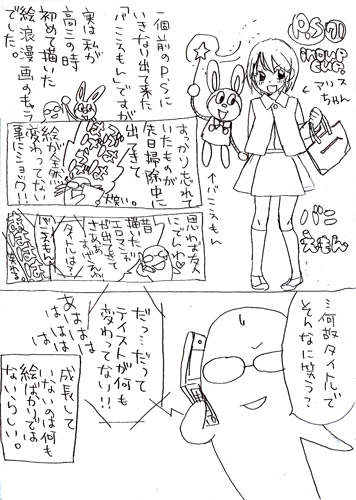 P.S 71
INDUP
CUP.
一個前のP.Sに
いきなり出て来た
「バニえもん」ですが
実は私が
高三の時
初めて描いた
絵浪漫画のキャラ
でした。
←アリス
ちゃん
↑バニえもん
バニ
えもん
すっかり忘れて
いたものが
先日掃除中に
出てきて
絵が全然
変わってない
事にショック!!
思わず友人
にでんわ
昔
描いた
エロマンガ
が出てきて
さあ
タイトルは?
バニえもん
…何故タイトルで
そんなに笑う?
だっ…だって
テイストが何も
変わってない!!
あはは
はは
はは
は
成長して
いないのは何も
絵ばかりでは
ないらしい。